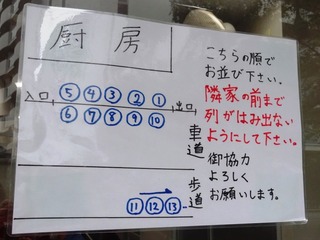 厨房
入口 ⑤④③②① 出口
⑥⑦⑧⑨⑩
車道
⑪⑫⑬
歩道
こちらの順で
お並び下さい。
隣家の前まで
列がはみ出ない
ようにして下さい。
御協力
よろしく
お願いします。